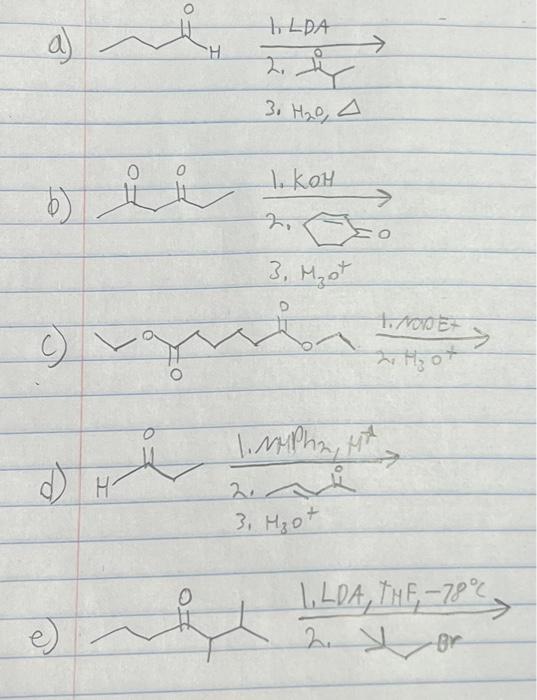 O
a) H 1. LDA
2. O
3. H2O, Δ
O O
b) 1. KOH
2. =O
3. H3O+
O
c) O O 1. NaOEt
O 2. H3O+
O
d) H 1. NHPh2, H+
2. O
3. H3O+
O
e) 1. LDA, THF, -78°C
2. Br